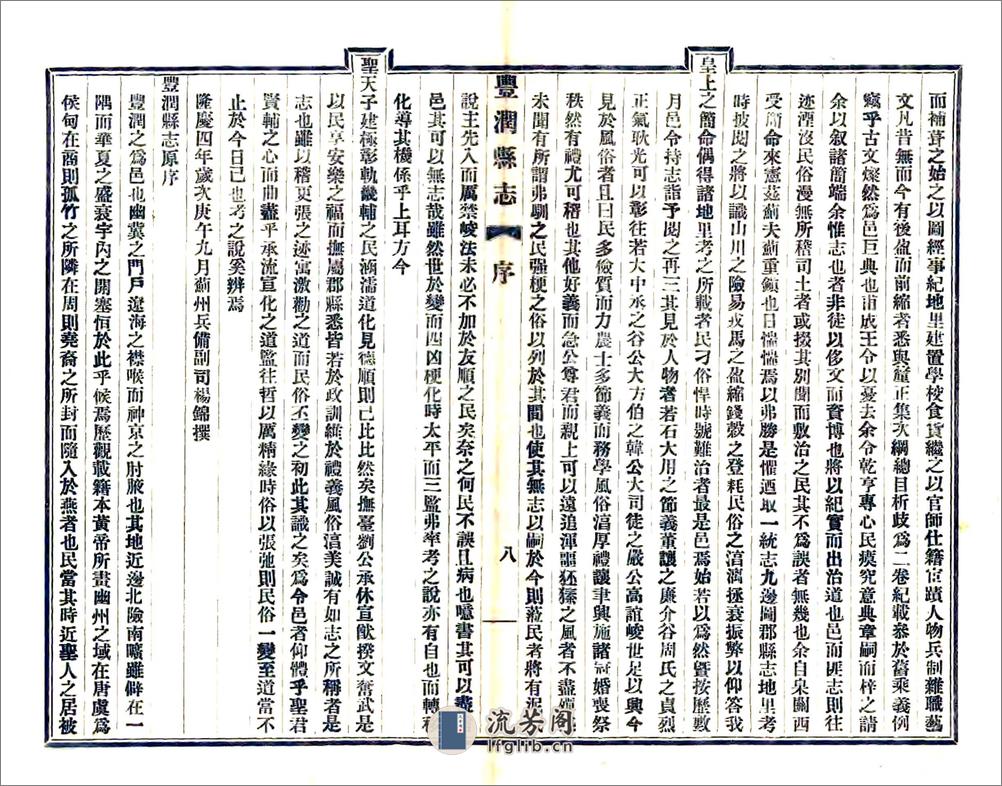 而補葺之始之以圖經事紀地里建置學校食貨繼之以官師仕籍宦蹟人物兵制雜職藝
文凡昔無而今有後盈而前縮者悉與釐正集次綱總目析歧爲二卷紀載叅於舊乘義例
竊乎古文燦然爲邑巨典也甫成王令以憂去余令乾亨專心民瘼究意典章嗣而梓之請
余以叙諸簡端余惟志也者非徒以侈文而賁博也將以紀實而出治道也邑而匪志則往
迹湮沒民俗漫無所稽司土者或掇其別聞而敷治之民其不爲誤者無幾也余自杲關西
受命來憲茲薊夫薊重鎮也日惴惴焉以弗勝是懼迺取一統志九邊圖郡縣志地里考
時披閱之將以識山川之險易戎馬之盈縮錢穀之登耗民俗之湻漓拯衰振弊以仰答我
皇上之簡命偶得諸地里考之所載者民刁俗悍時號難治者最是邑焉始若以爲然曁按歷數
月邑令持志詣予閱之再三其見於人物者若石大用之節義董讓之廉介谷周氏之貞烈
正氣耿光可以彰往若大中丞之谷公大方伯之韓公大司徒之嚴公高誼峻世足以興今
見於風俗者且曰民多儉質而力農士多節義而務學風俗湻厚禮讓聿興施諸冠婚喪祭
秩然有禮尤可稽也其他好義而急公尊君而親上可以遠追渾噩狉獉之風者不盡
未聞有所謂弗馴之民强梗之俗以列於其間也使其無志以嗣於今則蒞民者將有泥
說主先入而厲禁峻法未必不加於友順之民矣奈之何民不誤且病也噫書其可以盡
邑其可以無志哉雖然世於變而四凶梗化時太平而三監弗率考之說亦有自也而轉移
化導其機係乎上耳方今
聖天子建極彰軌畿輔之民涵濡道化見德順則已比比然矣撫臺劉公承休宣猷揆文奮武是
以民享安樂之福而撫屬郡縣悉皆若於政訓維於禮義風俗湻美誠有如志之所稱者是
志也雖以稽更張之迹寓激勸之道而民俗丕變之初此其識之矣爲令邑者仰體乎聖君
賢輔之心而曲盡乎承流宣化之道監往哲以厲精緣時俗以張弛則民俗一變至道當不
止於今日已也考之說奚辨焉
隆慶四年歲次庚午九月薊州兵備副司楊錦撰
豐潤縣志原序
豐潤之爲邑也幽冀之門戶遼海之襟喉而神京之肘腋也其地近邊北險南曠雖僻在一
隅而華夏之盛衰宇內之開塞恒於此乎候焉歷觀載籍本黃帝所畫幽州之域在唐虞爲
侯甸在商則孤竹之所隣在周則堯裔之所封而隨入於燕者也民當其時近聖人之居被
豐潤縣志 序 八
流芳阁
lfglib.cn